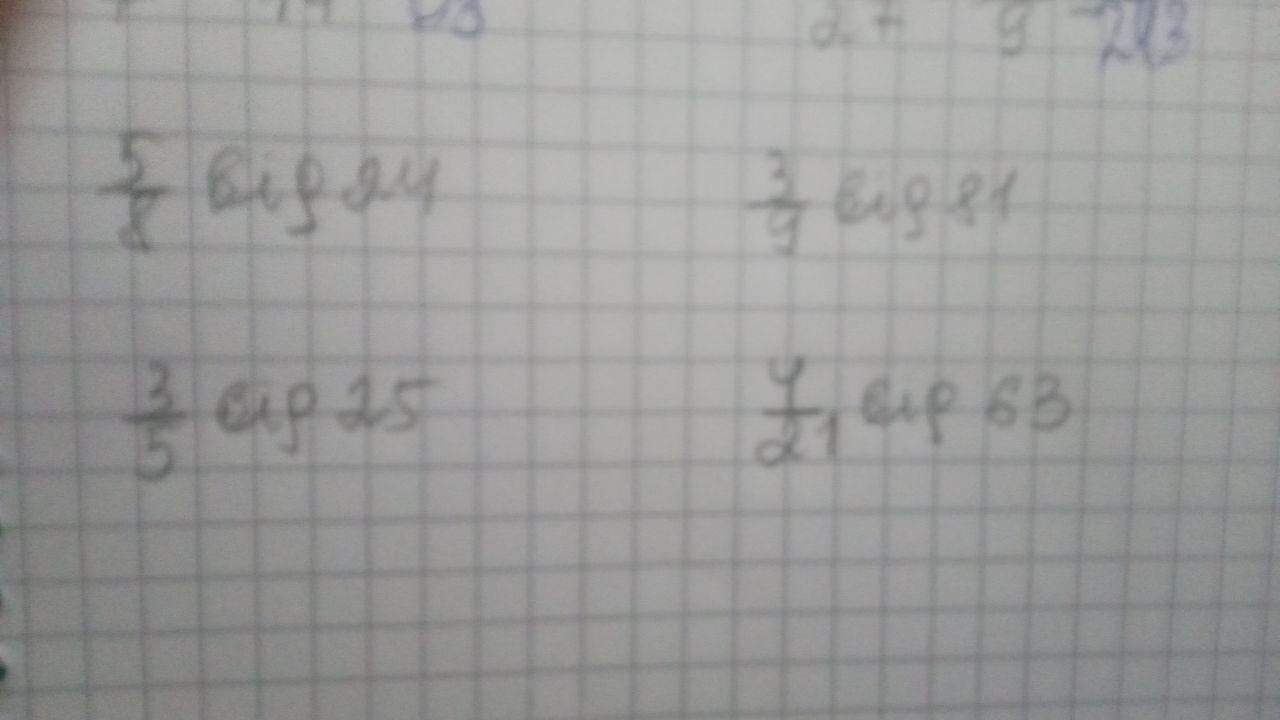 5/8 від 24
3/9 від 81
3/5 від 25
4/21 від 63